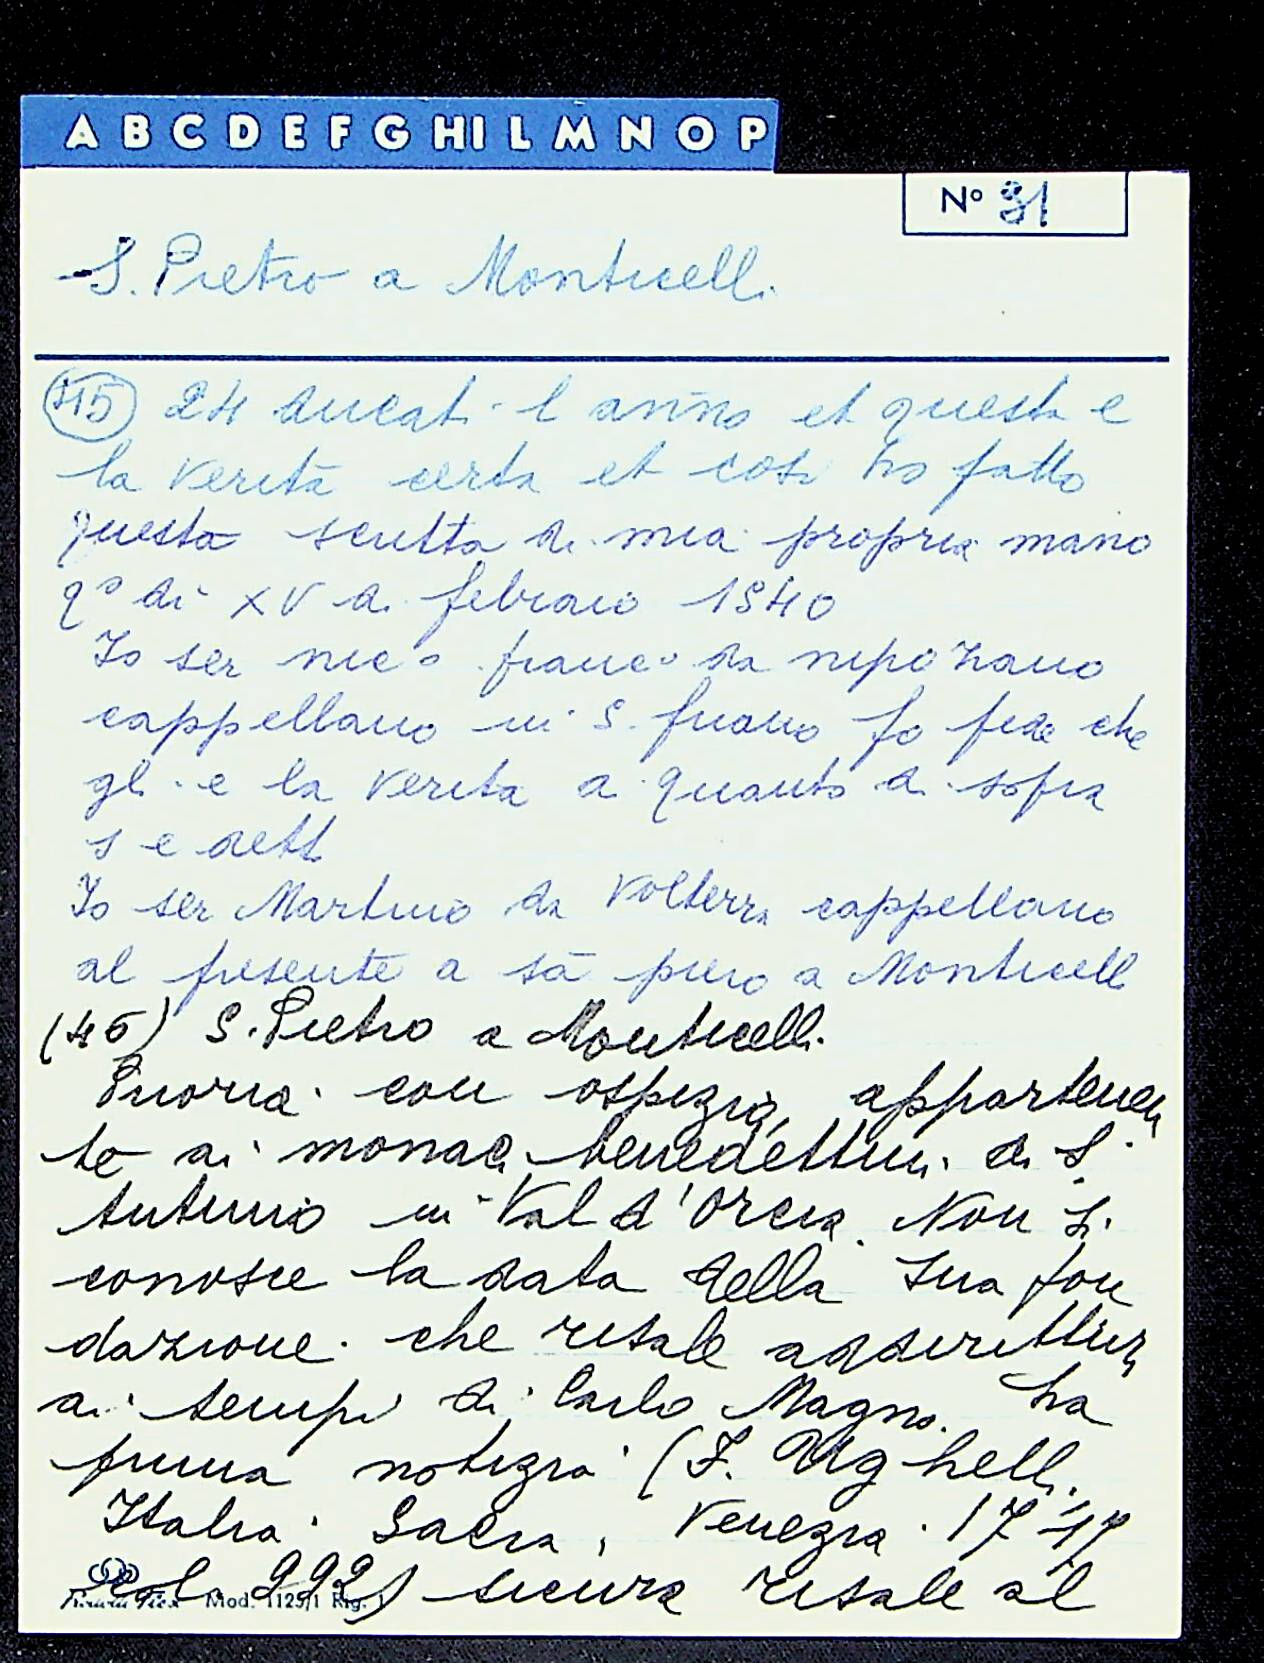 A B C D E F G HI L M N O P
N° 31
S. Pietro a Monticelli
(45) 24 ducati l anno et questa e
la verità certa et così ho fatto
questa scritta di mia propria mano
q° dì XV di febraio 1540
Io ser nic° franc° da nipozano
cappellano in S. friano fo fede che
gli e la verita a quanto di sopra
s e dett
Io ser Martino da Volterra cappellano
al presente a sā piero a Monticelli
(46) S. Pietro a Monticelli
Prioria con ospizio, appartenen
te ai monaci benedettini di S.
Antimo in Val d'Orcia. Non si
conosce la data della sua fon
dazione che risale addirittura
ai tempi di Carlo Magno. La
prima notizia (F. Ughelli
Italia Sacra, Venezia 1717
col. 992) sicura risale al
Mod. 1125/1 Rig. 1